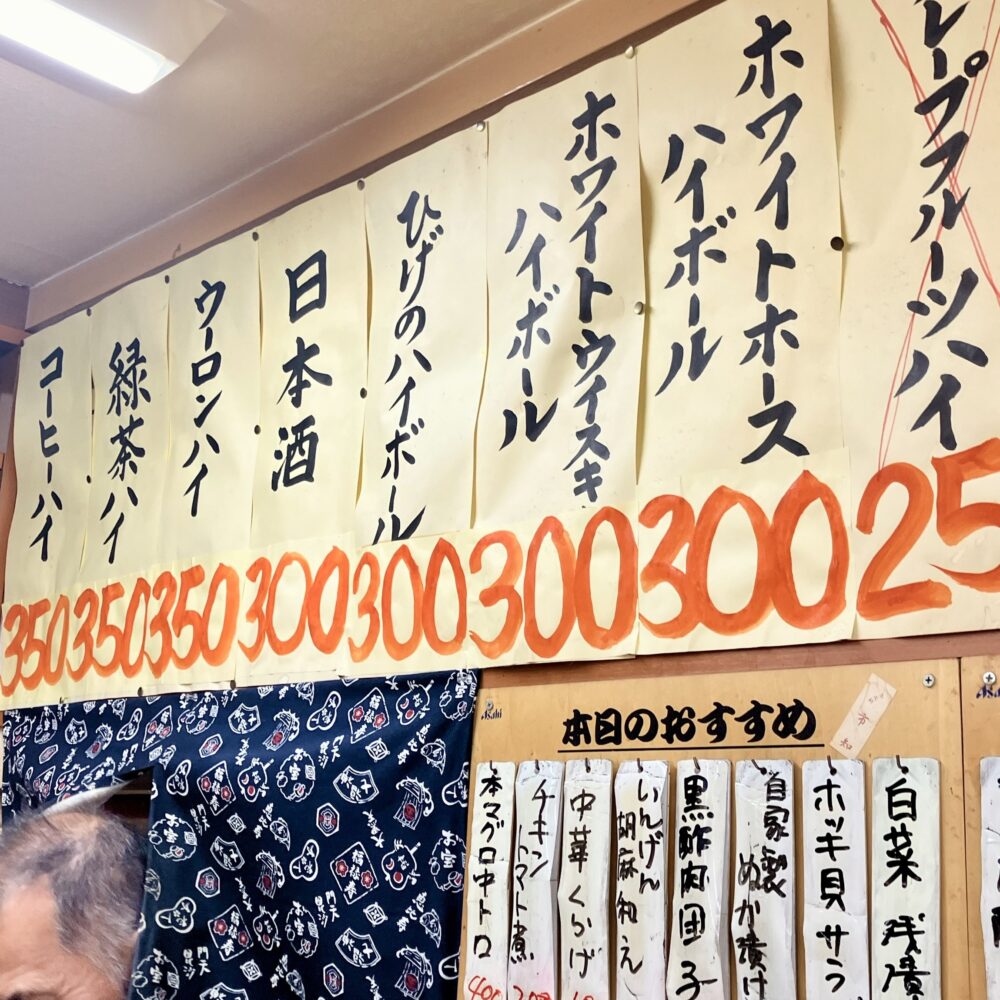 レープフルーツハイ
25
ホワイトホース
ハイボール
300
ホワイトウイスキ
ハイボール
300
ひげのハイボール
300
日本酒
300
ウーロンハイ
350
緑茶ハイ
350
コーヒーハイ
350
Asahi
本日のおすすめ
白菜浅漬
ホッキ貝サラ
自家製
ぬか漬け
黒酢肉団子
いんげん
胡麻和え
中華くらげ
チキン
トマト煮
本マグロ中トロ
400